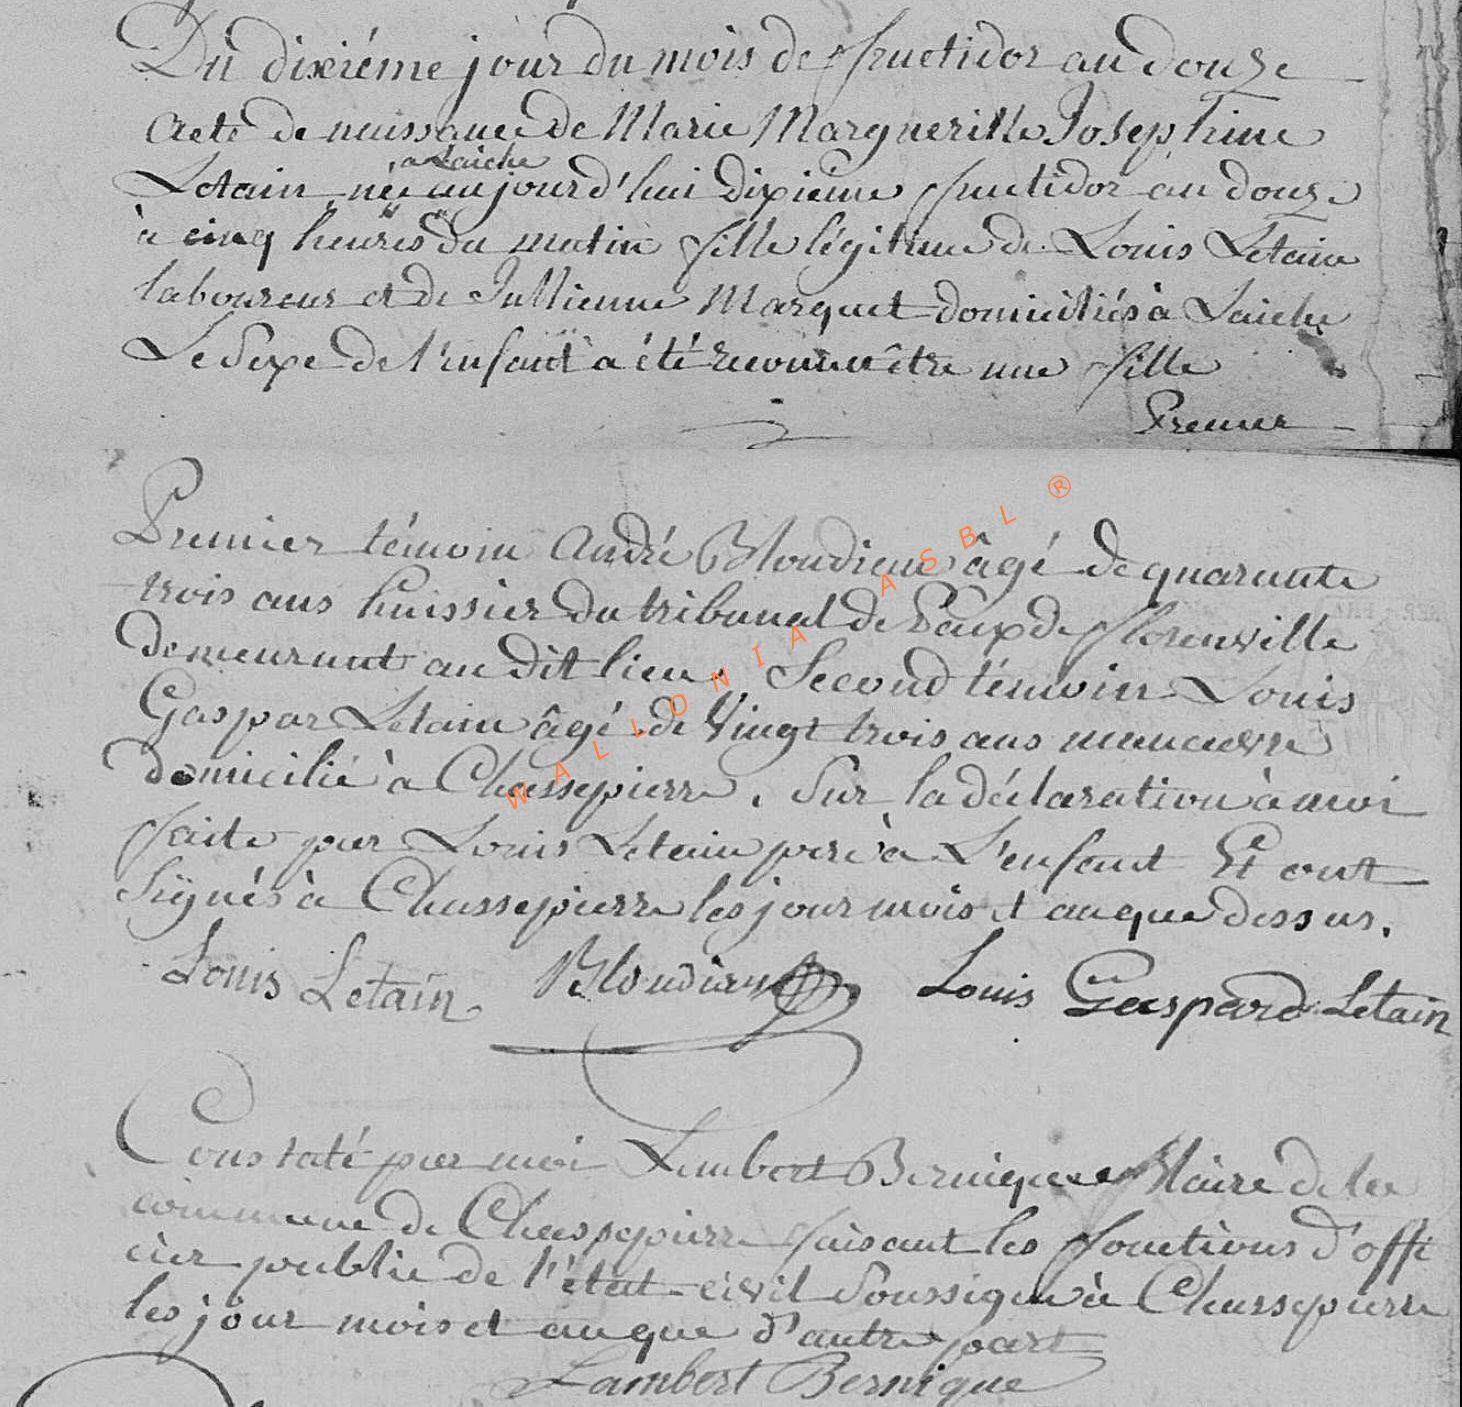 Du dixiéme jour du mois de fructidor an douze
Acte de naissance de Marie Margueritte Josephine
à Laiche
Letain née aujourd'hui dixieme fructidor an douze
à cinq heures du matin fille légitime de Louis Letain
laboureur et de Jullienne Marquet domiciliés à Laiche
Le Sexe de l'enfant a été reconnu être une fille
Premier
Premier témoin André Bloudieau âgé de quarante
trois ans huissier du tribunal de Paix de florenville
demeurant au dit lieu. Second témoin Louis
Gaspar Letain âgé de Vingt trois ans manœuvre
domicilié à Chassepierre. Sur la déclaration à moi
faite par Louis Letain pere à L'enfant Et ont
Signés à Chassepierre les jour mois et an que dessus.
Louis Letain Louis Gaspard Letain
Constaté par moi Lambert Bernique Maire de la
commune de Chassepierre faisant les fonctions d'offi
cier public de l'état-civil Soussigné à Chassepierre
les jour mois et an que d'autre part
Lambert Bernique
WALLONIA ASBL ®